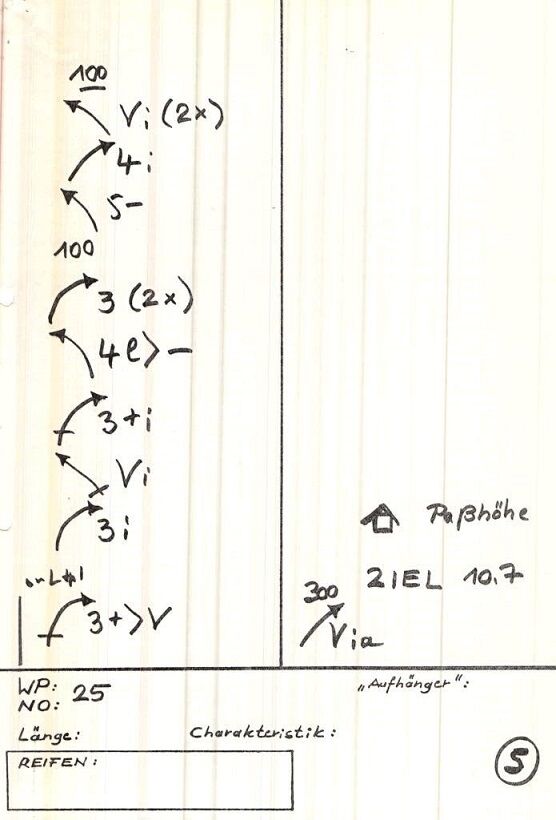 100
Vi (2x)
4i
5-
100
3 (2x)
4e>-
3+i
Vi
3i
3+>V
Paßhöhe
ZIEL 10.7
300
Via
WP: 25
NO:
„Aufhänger":
Länge:
Charakteristik:
REIFEN:
5